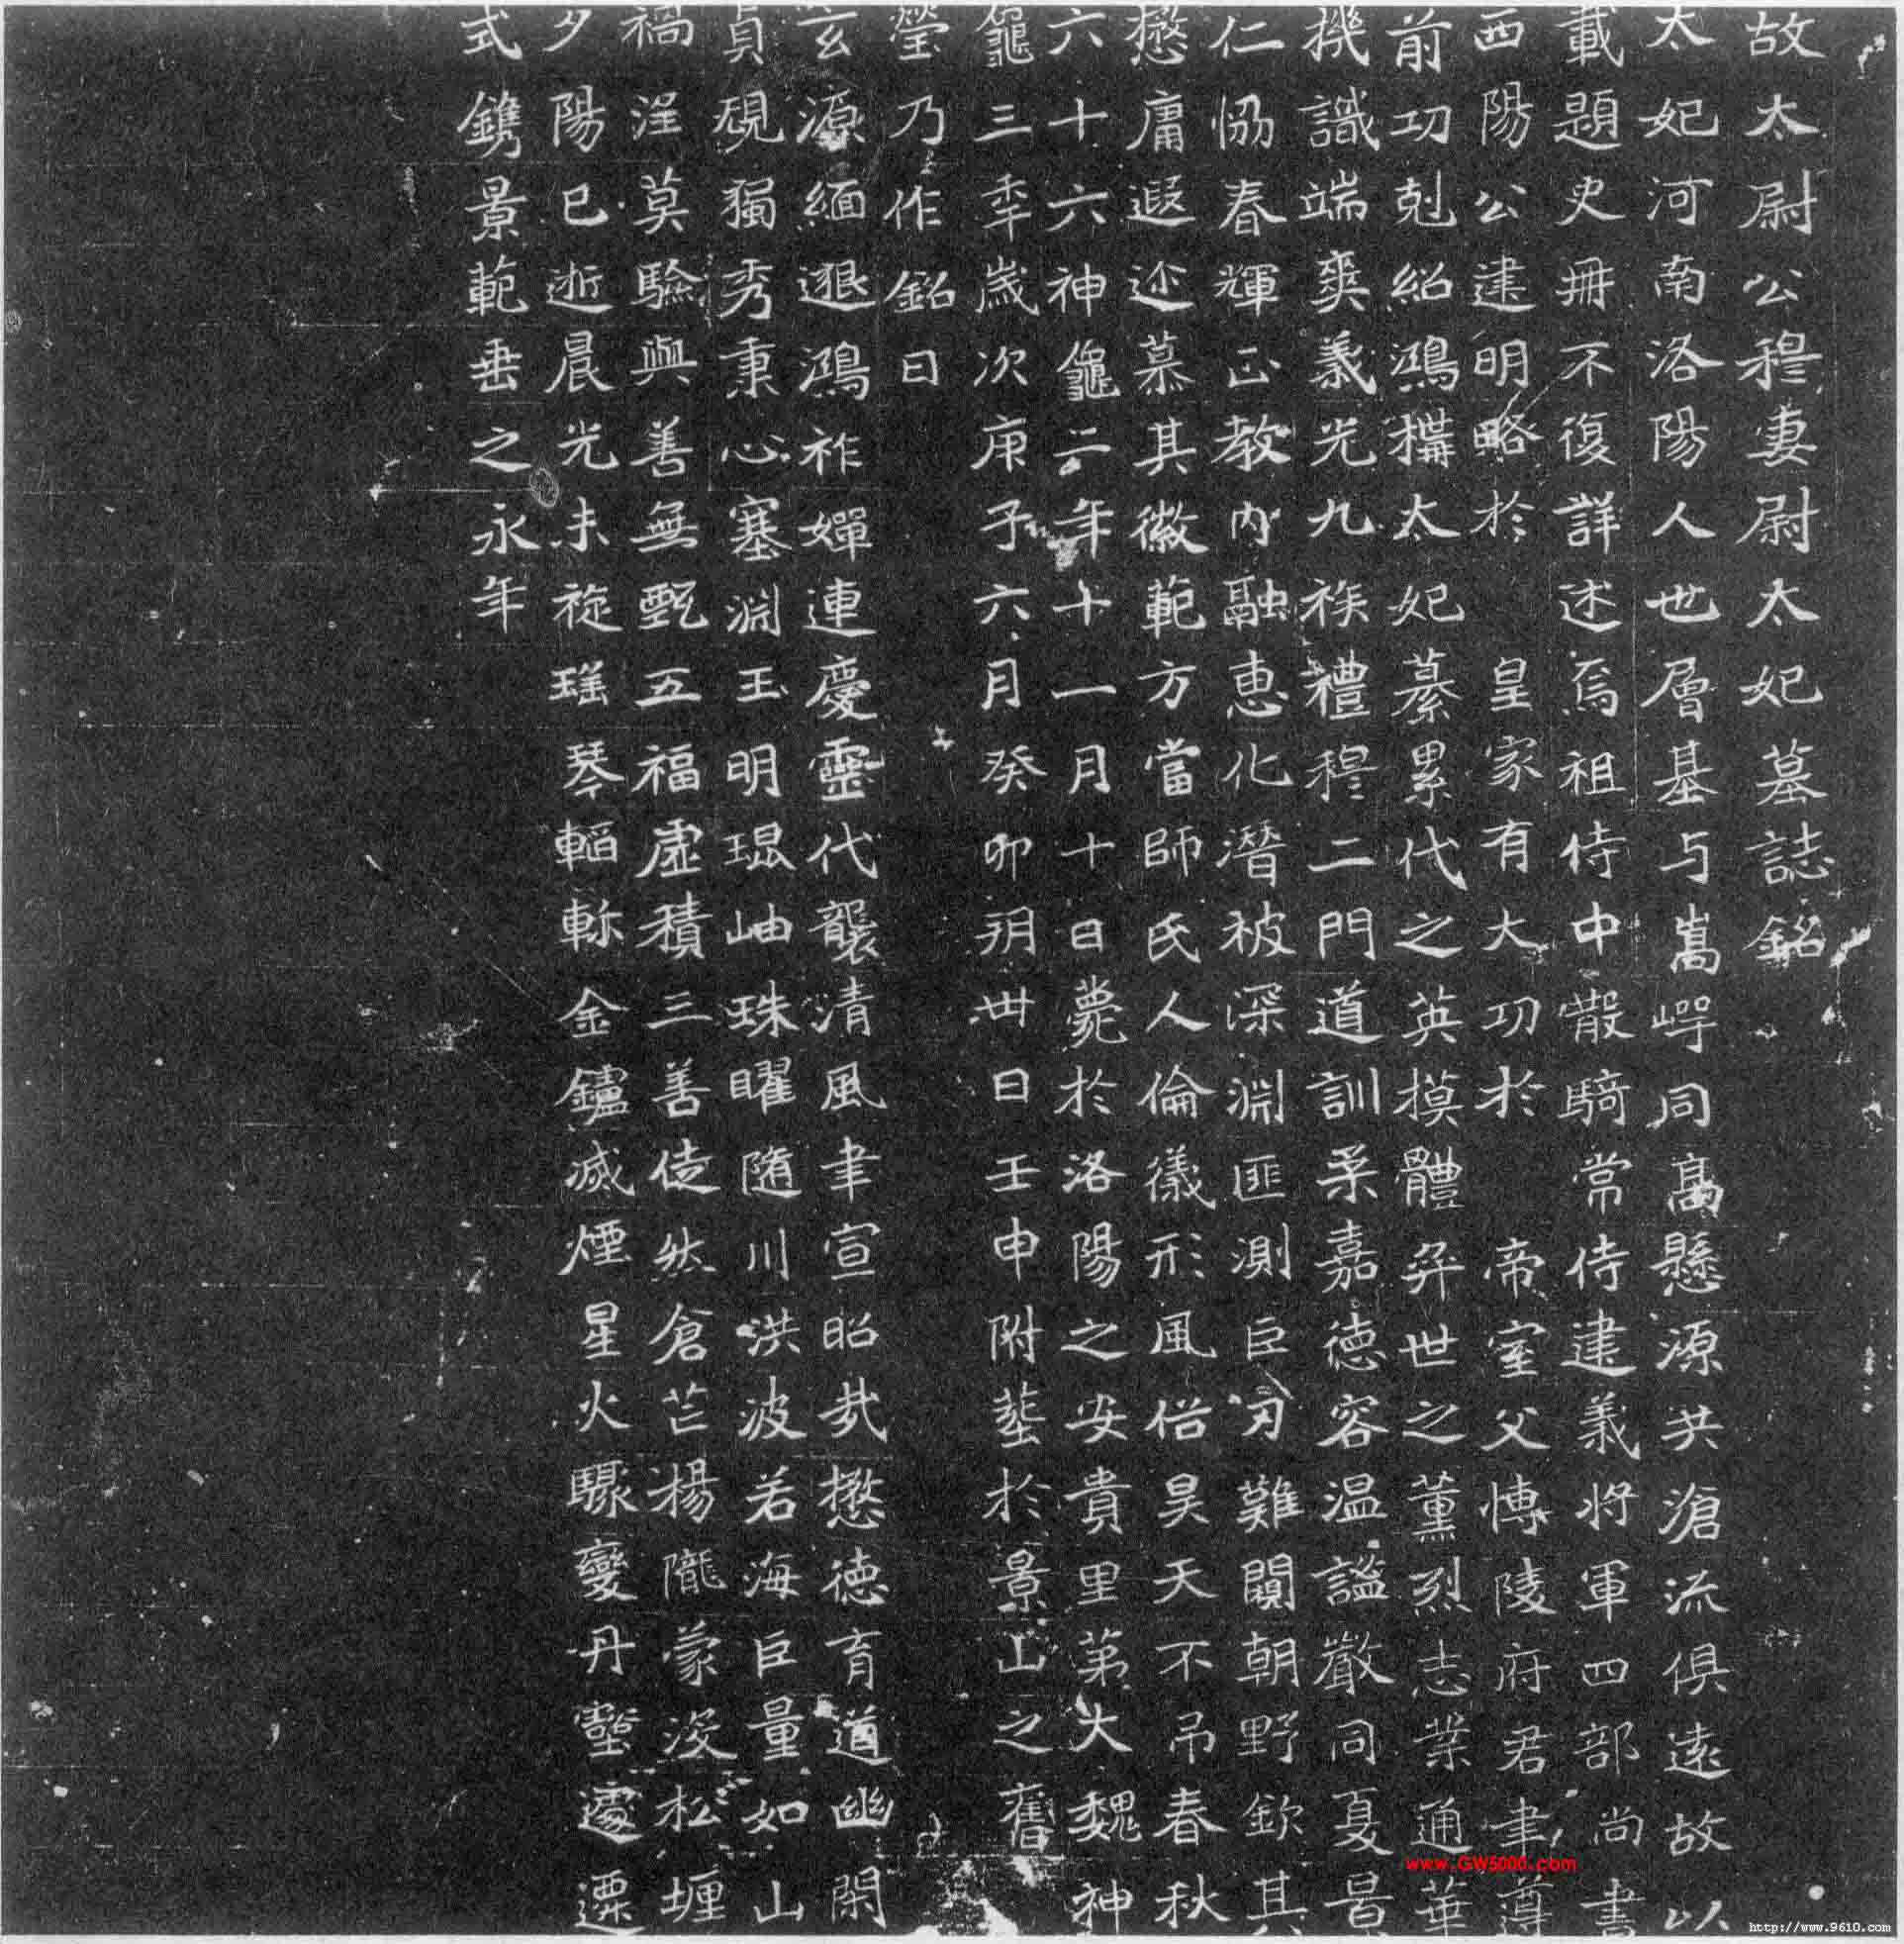 故太尉公穆妻尉太妃墓誌銘
太妃河南洛陽人也層基与嵩嶀同高懸源共滄流俱遠故以
載題史冊不復詳述焉祖侍中散騎常侍建義將軍四部尚書
西陽公建明略於皇家有大功於帝室父博陵府君聿遵
前功剋紹鴻構太妃綦累代之英摸體弈世之薰烈志業通華
機識端爽義光九族禮穆二門道訓柔嘉德容温謐嚴同夏景
仁恊春輝正教內融恵化潛被深淵匪測巨仞難闚朝野欽其
懋庸遐迩慕其徽範方當師氏人倫儀形風俗昊天不吊春秋
六十六神龜二年十一月十日薨於洛陽之安貴里第大魏神
龜三秊歲次庚子六月癸卯玥丗日壬申附塟於景山之舊
塋乃作銘曰
玄源緬邈鴻祚嬋連慶靈代襲清風聿宣昭㢤懋德育道幽閑
貞覛獨秀秉心塞淵玉明琨岫珠曜隨川洪波若海巨量如山
禍淫莫驗與善無甄五福虛積三善徒然倉芒楊隴蒙淡松堙
夕陽已逝晨光未旋瑤琴韜軫金鑪滅煙星火驟變丹壑遽遷
式鐫景範垂之永年
www.GW5000.com
http://www.9610.com